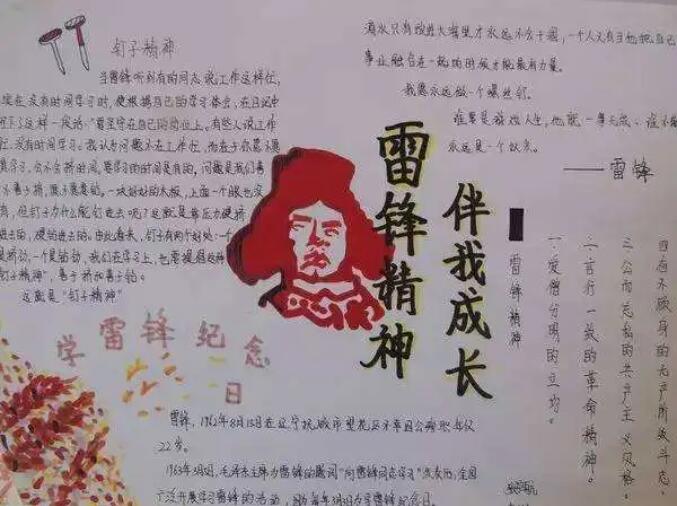 钉子精神
当雷锋听到有的同志说工作这样忙,
实在没有时间学习时,便根据自己的学习体会,在日记中
写下了这样一段话:"要坚守在自己的岗位上。有些人说工作
忙,没有时间学习。我认为问题不在工作忙,而在于你愿不愿
意学习,会不会挤时间。要学习的时间是有的,问题是我们善
不善于挤,愿不愿意钻。一块好好的木板,上面一个眼也没
有,但钉子为什么能钉进去呢?这就是靠压力硬挤
进去的,硬钻进去的。由此看来,钉子有两个好处:一个
是挤劲,一个是钻劲,我们在学习上,也要提倡这种
"钉子精神",善于挤和善于钻。
这就是"钉子精神"
滴水只有放进大海里才永远不会干涸,一个人只有当他把自己
事业融合在一起的时候才能最有力量。
我愿永远做一个螺丝钉。
谁要是游戏人生,他就一事无成、谁不
永远是一个奴隶。
——雷锋
雷锋精神
伴我成长
雷锋精神
一、爱憎分明的立场。
二、言行一致的革命精神。
三、公而忘私的共产主义风格。
四、奋不顾身的无产阶级斗志。
学雷锋纪念
日
雷锋,1962年8月15日在辽宁抚顺市望花区不幸因公殉职,年仅
22岁。
1963年3月5日,毛泽东主席为雷锋的题词"向雷锋同志学习"发表后,全国
广泛开展学习雷锋的活动,
月5日为学雷锋纪念日。